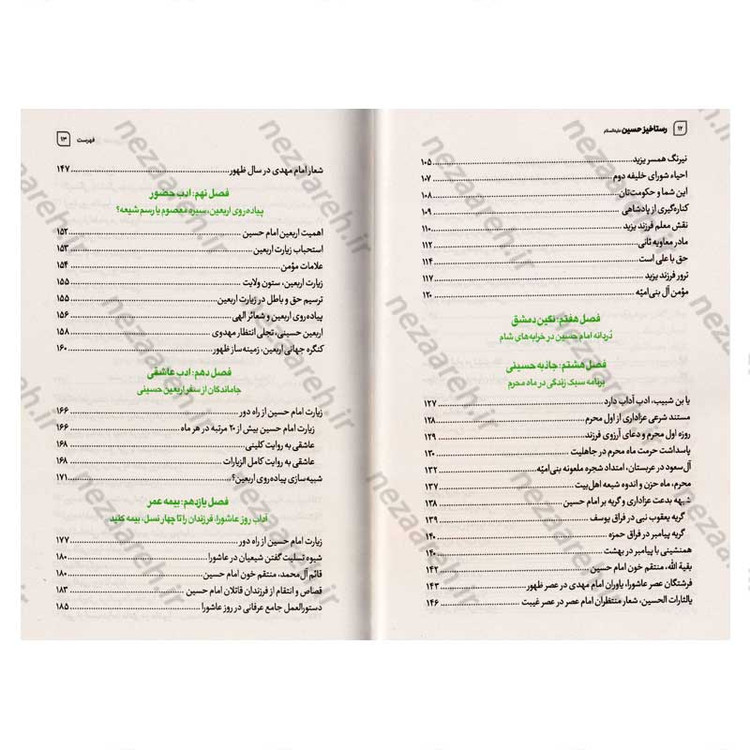 ۱۲ رستاخیز حسین علیه‌السلام
نیرنگ همسر یزید ۱۰۵
احیاء شورای خلیفه دوم ۱۰۷
این شما و حکومت‌تان ۱۰۸
کناره‌گیری از پادشاهی ۱۰۹
نقش معلم فرزند یزید ۱۱۰
مادر معاویه ثانی ۱۱۲
حق با علی است ۱۱۴
ترور فرزند یزید ۱۱۷
مؤمن آل بنی‌امیّه ۱۲۰
فصل هفتم: نگین دمشق
دُردانه امام حسین در خرابه‌های شام
فصل هشتم: جاذبه حسینی
برنامه سبک زندگی در ماه محرم
یا بن شبیب، ادب آداب دارد ۱۲۷
مستند شرعی عزاداری از اول محرم ۱۲۸
روزه اول محرم و دعای آرزوی فرزند ۱۲۹
پاسداشت حرمت ماه محرم در جاهلیت ۱۳۰
آل سعود در عربستان، امتداد شجره ملعونه بنی‌امیّه ۱۳۲
محرم، ماه حزن و اندوه شیعه اهل‌بیت ۱۳۷
شبهه بدعت عزاداری و گریه بر امام حسین ۱۳۸
گریه یعقوب نبی در فراق یوسف ۱۳۹
گریه پیامبر در فراق حمزه ۱۴۰
همنشینی با پیامبر در بهشت ۱۴۰
بقیة الله، منتقم خون امام حسین ۱۴۲
فرشتگان عصر عاشورا، یاوران امام مهدی در عصر ظهور ۱۴۳
یالثارات الحسین، شعار منتظران امام عصر در عصر غیبت ۱۴۶
فهرست ۱۳
شعار امام مهدی در سال ظهور ۱۴۷
فصل نهم: ادب حضور
پیاده‌روی اربعین، سیره معصوم یا رسم شیعه؟
اهمیت اربعین امام حسین ۱۵۲
استحباب زیارت اربعین ۱۵۳
علامات مؤمن ۱۵۴
زیارت اربعین، ستون ولایت ۱۵۵
ترسیم حق و باطل در زیارت اربعین ۱۵۵
پیاده‌روی اربعین و شعائر الهی ۱۵۶
اربعین حسینی، تجلی انتظار مهدوی ۱۵۸
کنگره جهانی اربعین، زمینه‌ساز ظهور ۱۶۰
فصل دهم: ادب عاشقی
جاماندگان از سفر اربعین حسینی
زیارت امام حسین از راه دور ۱۶۶
زیارت امام حسین بیش از ۲۰ مرتبه در هر ماه ۱۶۶
عاشقی به روایت کلینی ۱۶۸
عاشقی به روایت کامل الزیارات ۱۶۸
شبیه‌سازی پیاده‌روی اربعین؟ ۱۷۱
فصل یازدهم: بیمه عمر
آداب روز عاشورا، فرزندان را تا چهار نسل، بیمه کنید
زیارت امام حسین از راه دور ۱۷۷
شیوه تسلیت گفتن شیعیان در عاشورا ۱۸۰
قائم آل محمد، منتقم خون امام حسین ۱۸۰
قصاص و انتقام از فرزندان قاتلان امام حسین ۱۸۳
دستورالعمل جامع عرفانی در روز عاشورا ۱۸۵
nezaareh.ir